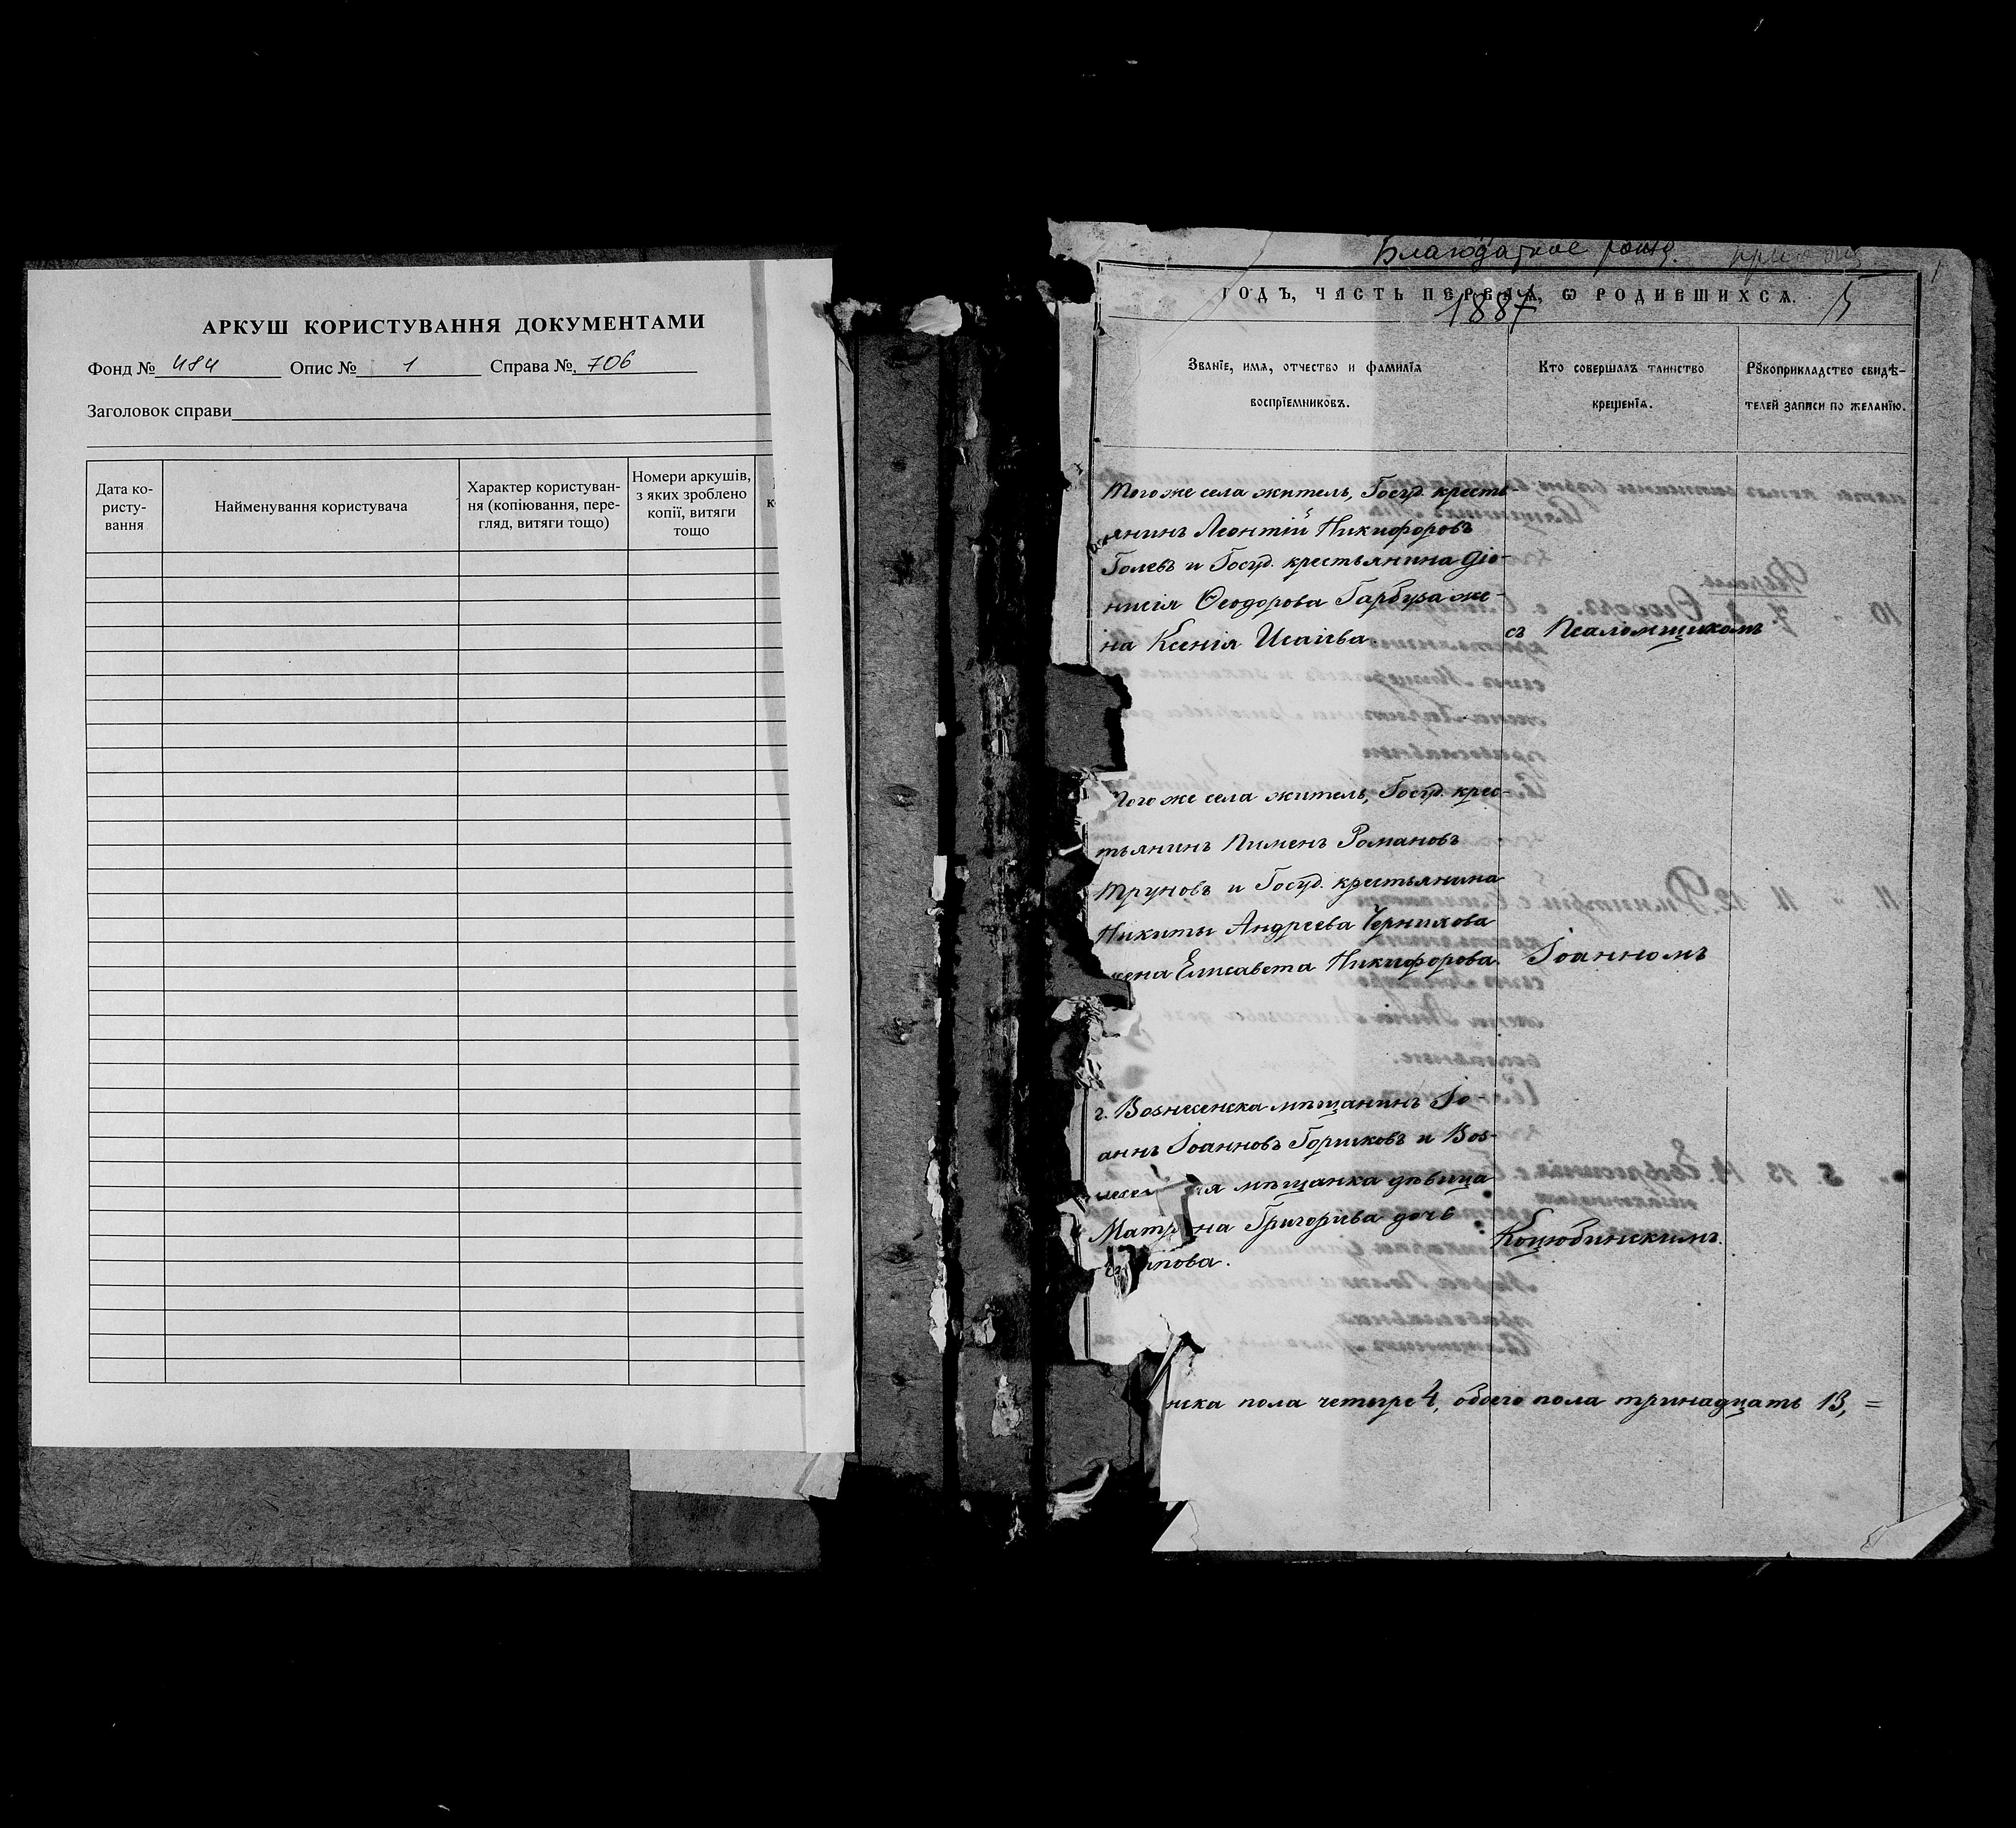 АРКУШ КОРИСТУВАННЯ ДОКУМЕНТАМИ
Фонд № 484 Опис № 1 Справа № 706
Заголовок справи
Дата ко-
ристу-
вання
Найменування користувача
Характер користуван-
ня (копіювання, пере-
гляд, витяги тощо)
Номери аркушів,
з яких зроблено
копії, витяги
тощо
Благодатное
1887
ГОДЪ, ЧАСТЬ ПЕРВАЯ, Ѡ РОДИВШИХСѦ. 5
Званїе, имѧ, отчество и фамилїѧ
воспрїемниковъ.
Кто совершалъ таинство
крещенїѧ.
Рꙋкоприкладство свидѣ-
телей записи по желанїю.
Тогоже села житель, Госуд. кресть-
янинъ Леонтій Никифоровъ
Голевъ и Госуд. крестьянина Діо-
нисія Ѳеодорова Гарбуза же-
на Ксенія Исаіева
съ Псаломщикомъ
Тогоже села житель, Госуд. крес-
тьянинъ Пименъ Романовъ
Труновъ и Госуд. крестьянина
Никиты Андреева Чернилова
жена Елисавета Никифорова.
Іоанномъ
г. Вознесенска мѣщанинъ Іо-
аннъ Іоанновъ Горшковъ и Воз-
я мѣщанка дѣвица
Матрона Григорьева дочь
пова.
Коцюбинскимъ.
нска пола четыре 4, обоего пола тринадцать 13, =